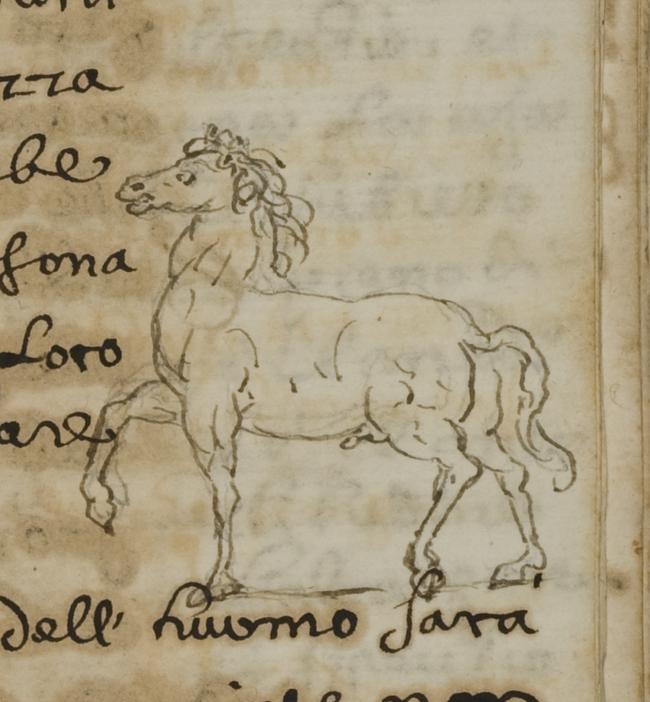 zza
be
sona
Loro
are
dell' huomo sarà